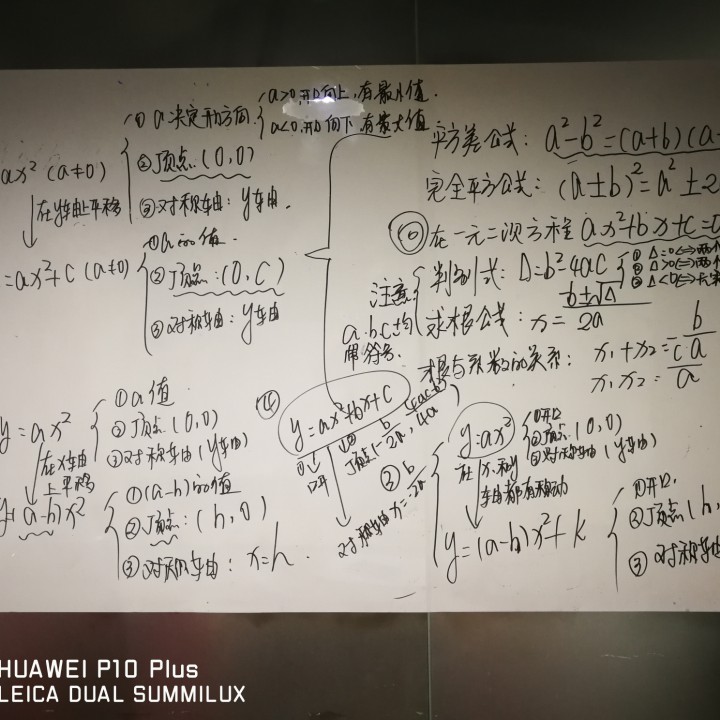 ax² (a≠0)
① a决定开口方向
a>0,开口向上,有最小值.
a<0,开口向下,有最大值
②顶点:(0,0)
③对称轴:y轴.
在y轴上平移
=ax²+c (a≠0)
①a的值.
②顶点:(0,C)
③对称轴:y轴
y=ax²
①a值
②顶点(0,0)
③对称轴(y轴)
在x轴
上平移
y=(a-h)x²
①(a-h)的值
②顶点:(h,0)
③对称轴:x=h.
平方差公式: a²-b²=(a+b)(a-
完全平方公式: (a±b)²=a²±2
在一元二次方程ax²+bx+c=
判别式: Δ=b²4ac
① Δ=0⇔两个
② Δ>0⇔两个
③ Δ<0⇔
注意
a.b.c均
带符号.
求根公式: x= b±√Δ / 2a
根与系数的关系: x₁+x₂= b/a
x₁x₂= c/a
④ y=ax²+bx+c
① 开口
② 顶点(-b/2a, (4ac-b²)/4a)
③ 对称轴x=-b/2a
y=ax²
①开口
②顶点(0,0)
③对称轴(y轴)
在x.和y
轴都有移动
y=(a-h)x²+k
①开口.
②顶点(h,
③对称轴
HUAWEI P10 Plus
LEICA DUAL SUMMILUX